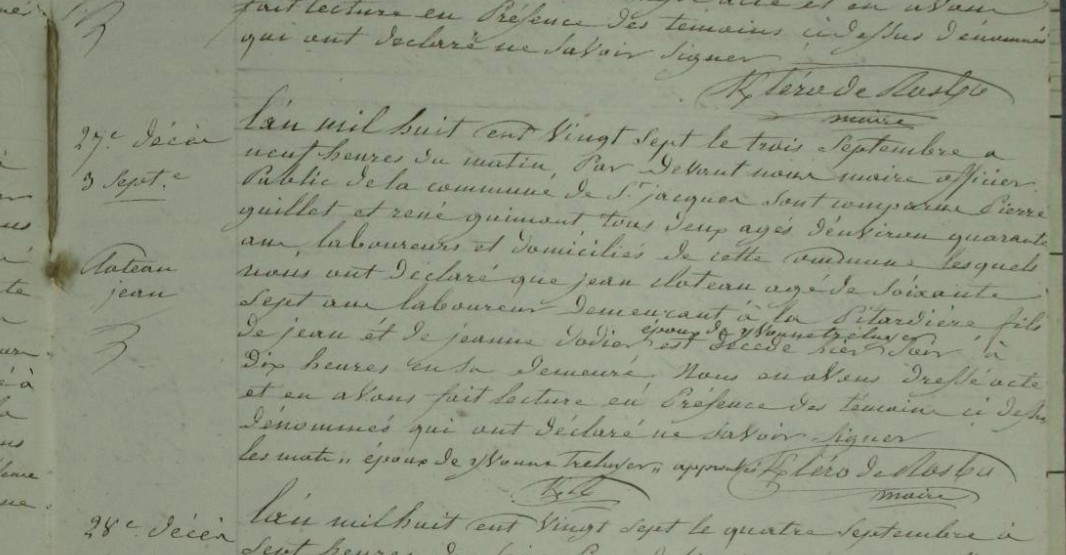 fait lecture en Présence des temoins ci dessus dénommés
qui ont declaré ne savoir signer
maire
27e décès
3 Septe
Cloteau
jean
L'an mil huit cent Vingt Sept le trois Septembre a
neuf heures du matin, Par Devant nous maire officier
Public de la commune de St jacques sont comparus Pierre
guillet et rené guimont tous deux agés d'environ quarante
ans laboureurs et domiciliés de cette commune lesquels
nous ont déclaré que jean cloteau agé de soixante
Sept ans laboureur demeurant à la Pitardiére fils
époux de yvonne treluyer
de jean et de jeanne dodier est décédé hier soir à
Dix heures en sa demeure. Nous en avons dressé acte
et en avons fait lecture en Presence des témoins ci dessus
dénommés qui ont déclaré ne savoir signer
les mots ,, époux de yvonne treluyer ,, approuvés
maire
28e décès
L'an mil huit cent Vingt Sept le quatre Septembre à
Sept heures du